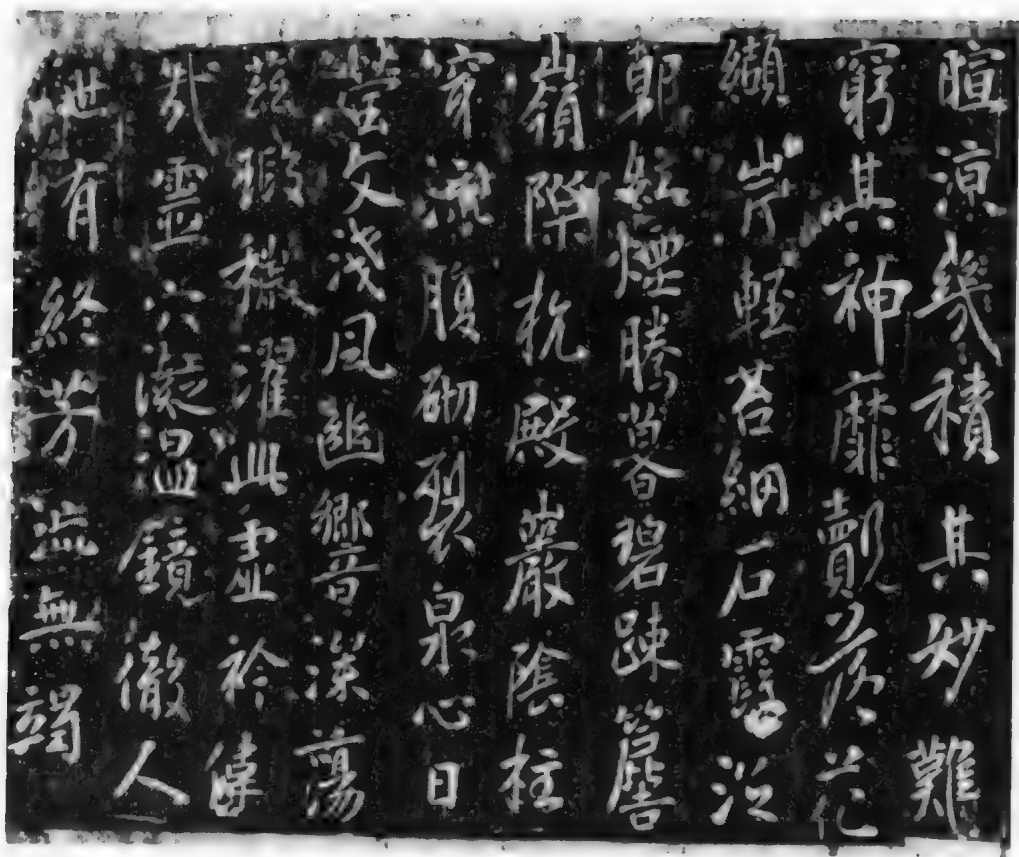 暄涼幾積其妙難
窮其神靡賾落花
纈岸輕苔網石霞泛
朝紅煙騰暮碧疎簷
嶺際杭殿巖陰柱
穿流腹砌裂泉心日
瑩文淺風幽響深蕩
茲瑕穢濯此虛衿偉
哉靈穴凝溫鏡徹人
世有終芳流無竭